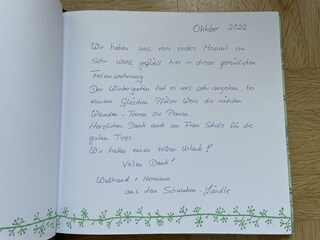 Oktober 2022
Wir haben uns vom ersten Moment an
sehr wohl gefühlt hier in dieser gemütlichen
Ferienwohnung
Der Wintergarten hat es uns sehr angetan, bei
einem Gläschen Wein die nächsten
Wander-Touren zu Planen
Herzlichen Dank auch an Frau Schulz für die
guten Tipps
Wir hatten einen tollen Urlaub!
Vielen Dank!
+ Hermann
aus dem Schwaben-Ländle